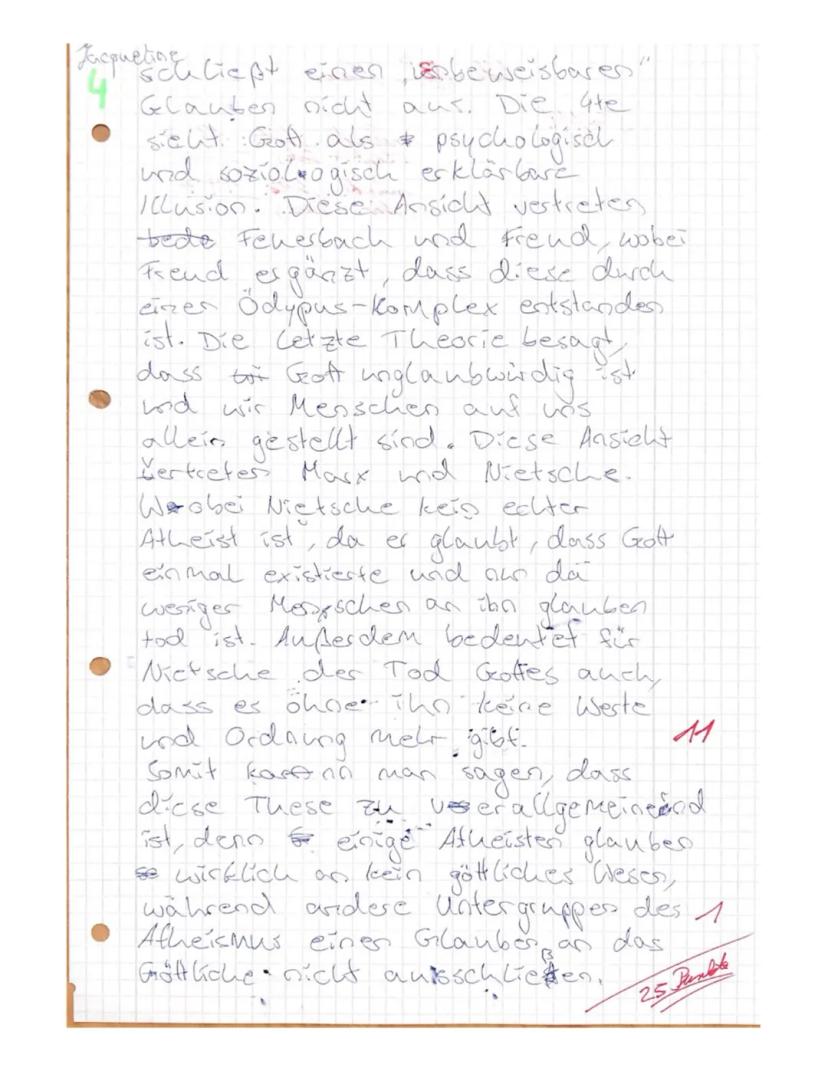 Jacqueline
4
schließt einen „unbeweisbaren"
Glauben nicht aus. Die 4te
sieht Gott als psychologisch
und soziologisch erklärbare
Illusion. Diese Ansicht vertreten
bede Feuerbach und Freud, wobei
Freud ergänzt, dass diese durch
einen Ödypus-Komplex entstanden
ist. Die letzte Theorie besagt,
dass Gott unglaubwürdig ist
und wir Menschen auf uns
allein gestellt sind. Diese Ansicht
vertreten Marx und Nietsche.
Wobei Nietsche kein echter
Atheist ist, da er glaubt, dass Gott
einmal existierte und nun da
weniger Menschen an ihn glauben
tod ist. Außerdem bedeutet für
Nietsche der Tod Gottes auch,
dass es ohne ihn keine Werte
und Ordnung mehr gibt.
11
Somit kann man sagen, dass
diese These zu verallgemeinernd
ist, denn einige Atheisten glauben
wirklich an kein göttliches Wesen,
während andere Untergruppen des
1
Atheismus einen Glauben an das
Göttliche nicht ausschließen.
25 Punkte